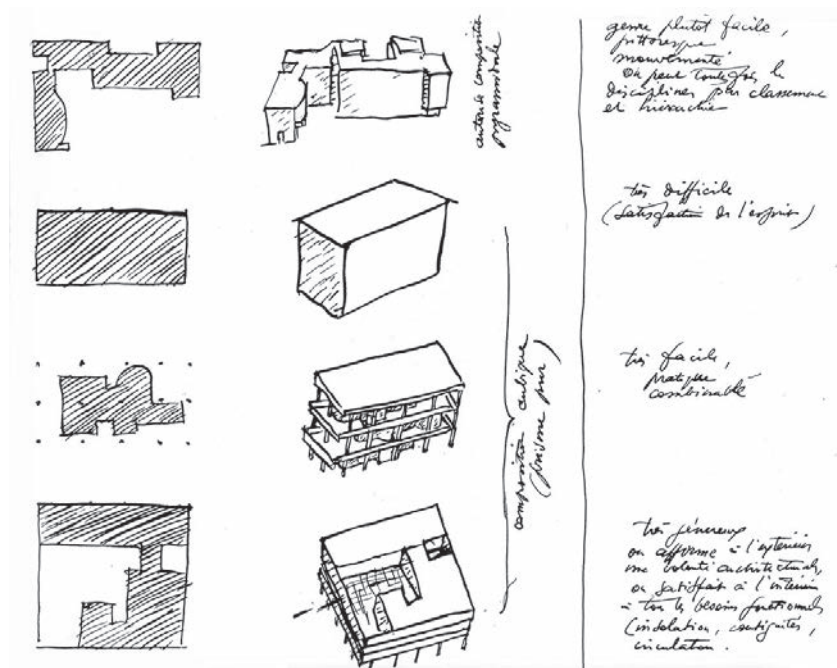 composition
pyramidale
genre plutôt facile,
pittoresque
mouvementé
on peut toutefois le
discipliner par classement
et hiérarchie
très difficile
(satisfaction de l'esprit)
composition cubique
(prisme pur)
très facile,
pratique
combinable
très généreux
on affirme à l'extérieur
une volonté architecturale,
on satisfait à l'intérieur
à tous les besoins fonctionnels
(insolation, contiguités,
circulation.